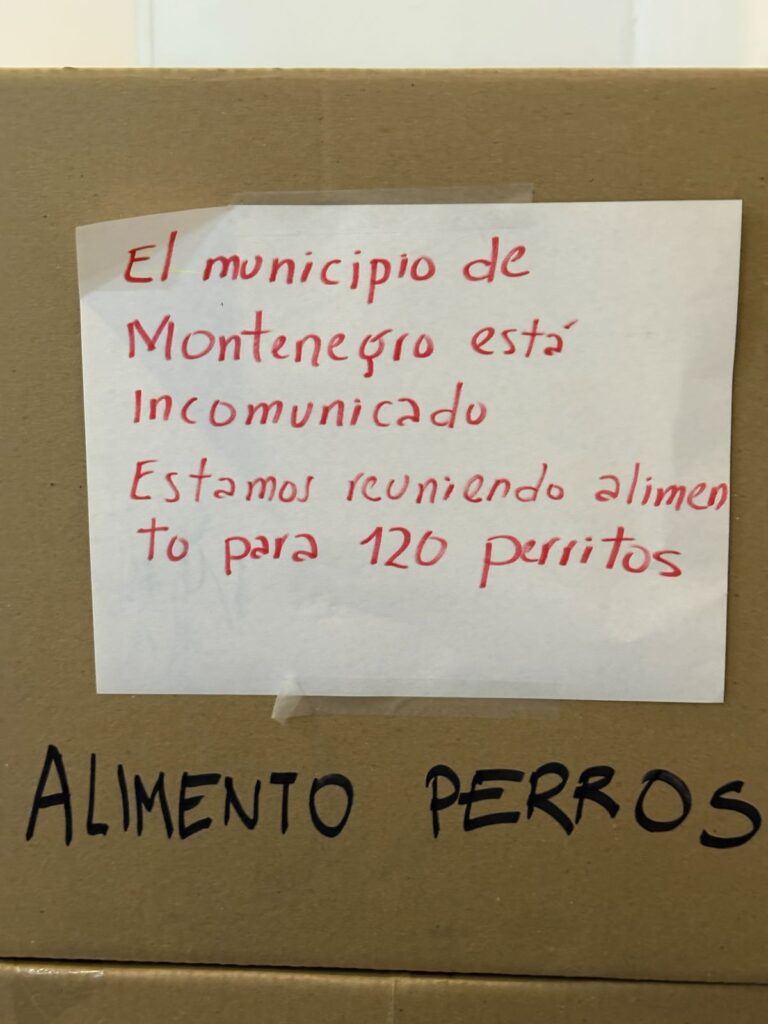 El municipio de
Montenegro está
Incomunicado
Estamos reuniendo alimen
to para 120 perritos
ALIMENTO PERROS